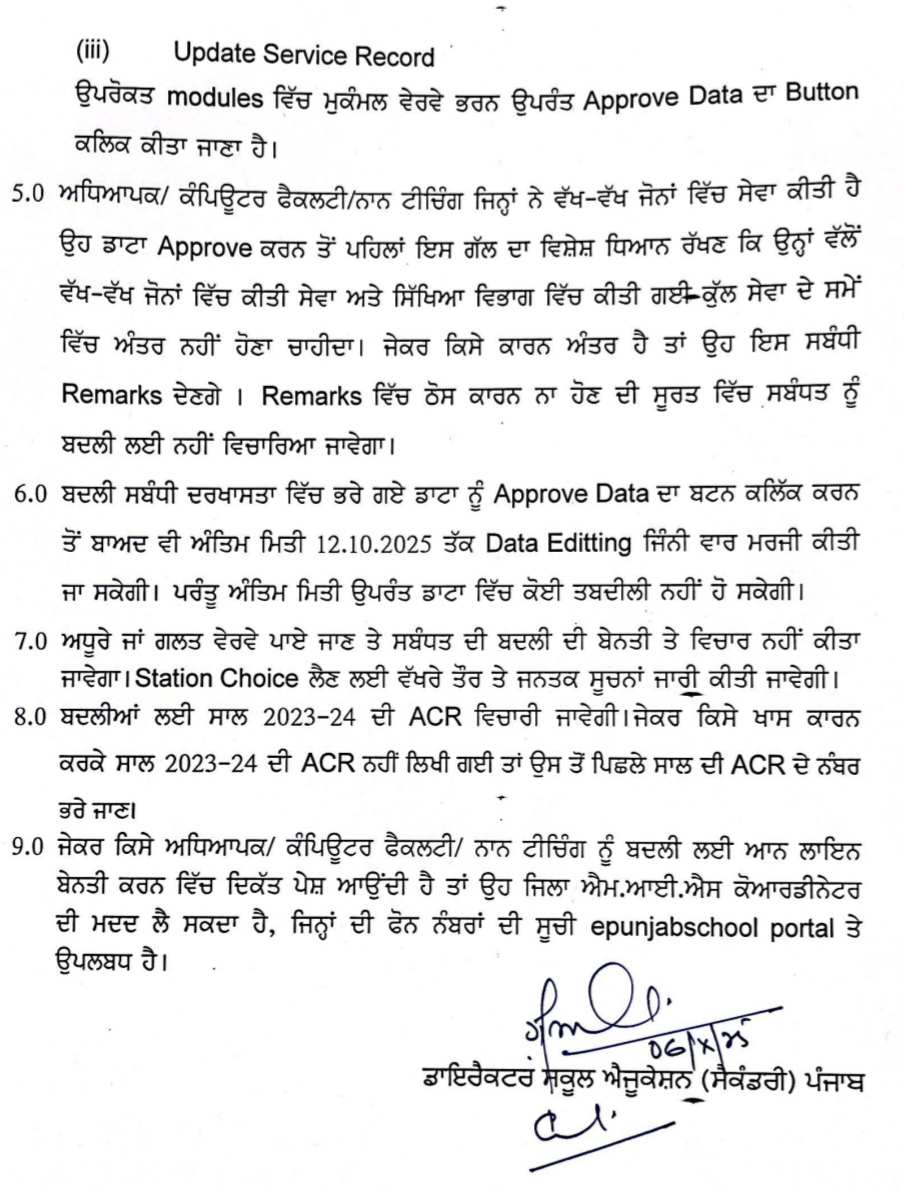 (iii) Update Service Record
ਉਪਰੋਕਤ modules ਵਿੱਚ ਮੁਕੰਮਲ ਵੇਰਵੇ ਭਰਨ ਉਪਰੰਤ Approve Data ਦਾ Button
ਕਲਿਕ ਕੀਤਾ ਜਾਣਾ ਹੈ।
5.0 ਅਧਿਆਪਕ/ ਕੰਪਿਊਟਰ ਫੈਕਲਟੀ/ਨਾਨ ਟੀਚਿੰਗ ਜਿਨ੍ਹਾਂ ਨੇ ਵੱਖ-ਵੱਖ ਜੋਨਾਂ ਵਿੱਚ ਸੇਵਾ ਕੀਤੀ ਹੈ
ਉਹ ਡਾਟਾ Approve ਕਰਨ ਤੋਂ ਪਹਿਲਾਂ ਇਸ ਗੱਲ ਦਾ ਵਿਸ਼ੇਸ਼ ਧਿਆਨ ਰੱਖਣ ਕਿ ਉਨ੍ਹਾਂ ਵੱਲੋਂ
ਵੱਖ-ਵੱਖ ਜੋਨਾਂ ਵਿੱਚ ਕੀਤੀ ਸੇਵਾ ਅਤੇ ਸਿੱਖਿਆ ਵਿਭਾਗ ਵਿੱਚ ਕੀਤੀ ਗਈ ਕੁੱਲ ਸੇਵਾ ਦੇ ਸਮੇਂ
ਵਿੱਚ ਅੰਤਰ ਨਹੀਂ ਹੋਣਾ ਚਾਹੀਦਾ। ਜੇਕਰ ਕਿਸੇ ਕਾਰਨ ਅੰਤਰ ਹੈ ਤਾਂ ਉਹ ਇਸ ਸਬੰਧੀ
Remarks ਦੇਣਗੇ । Remarks ਵਿੱਚ ਠੋਸ ਕਾਰਨ ਨਾ ਹੋਣ ਦੀ ਸੂਰਤ ਵਿੱਚ ਸਬੰਧਤ ਨੂੰ
ਬਦਲੀ ਲਈ ਨਹੀਂ ਵਿਚਾਰਿਆ ਜਾਵੇਗਾ।
6.0 ਬਦਲੀ ਸਬੰਧੀ ਦਰਖਾਸਤਾ ਵਿੱਚ ਭਰੇ ਗਏ ਡਾਟਾ ਨੂੰ Approve Data ਦਾ ਬਟਨ ਕਲਿੱਕ ਕਰਨ
ਤੋਂ ਬਾਅਦ ਵੀ ਅੰਤਿਮ ਮਿਤੀ 12.10.2025 ਤੱਕ Data Editting ਜਿੰਨੀ ਵਾਰ ਮਰਜੀ ਕੀਤੀ
ਜਾ ਸਕੇਗੀ। ਪਰੰਤੂ ਅੰਤਿਮ ਮਿਤੀ ਉਪਰੰਤ ਡਾਟਾ ਵਿੱਚ ਕੋਈ ਤਬਦੀਲੀ ਨਹੀਂ ਹੋ ਸਕੇਗੀ।
7.0 ਅਧੂਰੇ ਜਾਂ ਗਲਤ ਵੇਰਵੇ ਪਾਏ ਜਾਣ ਤੇ ਸਬੰਧਤ ਦੀ ਬਦਲੀ ਦੀ ਬੇਨਤੀ ਤੇ ਵਿਚਾਰ ਨਹੀਂ ਕੀਤਾ
ਜਾਵੇਗਾ। Station Choice ਲੈਣ ਲਈ ਵੱਖਰੇ ਤੌਰ ਤੇ ਜਨਤਕ ਸੂਚਨਾਂ ਜਾਰੀ ਕੀਤੀ ਜਾਵੇਗੀ।
8.0 ਬਦਲੀਆਂ ਲਈ ਸਾਲ 2023-24 ਦੀ ACR ਵਿਚਾਰੀ ਜਾਵੇਗੀ।ਜੇਕਰ ਕਿਸੇ ਖਾਸ ਕਾਰਨ
ਕਰਕੇ ਸਾਲ 2023-24 ਦੀ ACR ਨਹੀਂ ਲਿਖੀ ਗਈ ਤਾਂ ਉਸ ਤੋਂ ਪਿਛਲੇ ਸਾਲ ਦੀ ACR ਦੇ ਨੰਬਰ
ਭਰੇ ਜਾਣ।
9.0 ਜੇਕਰ ਕਿਸੇ ਅਧਿਆਪਕ/ ਕੰਪਿਊਟਰ ਫੈਕਲਟੀ/ ਨਾਨ ਟੀਚਿੰਗ ਨੂੰ ਬਦਲੀ ਲਈ ਆਨ ਲਾਇਨ
ਬੇਨਤੀ ਕਰਨ ਵਿੱਚ ਦਿਕੱਤ ਪੇਸ਼ ਆਉਂਦੀ ਹੈ ਤਾਂ ਉਹ ਜਿਲਾ ਐਮ.ਆਈ.ਐਸ ਕੋਆਰਡੀਨੇਟਰ
ਦੀ ਮਦਦ ਲੈ ਸਕਦਾ ਹੈ, ਜਿਨ੍ਹਾਂ ਦੀ ਫੋਨ ਨੰਬਰਾਂ ਦੀ ਸੂਚੀ epunjabschool portal ਤੇ
ਉਪਲਬਧ ਹੈ।
06/X/25
ਡਾਇਰੈਕਟਰ ਸਕੂਲ ਐਜੂਕੇਸ਼ਨ (ਸੈਕੰਡਰੀ) ਪੰਜਾਬ